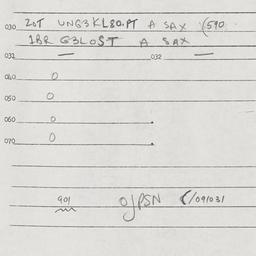 030 20T UNG3KL80.PT A SAX (590
1BR G3LOST A SAX
031 — 032 —
040 0
050 0
060 0
070 0
901 OJPSN (/091031